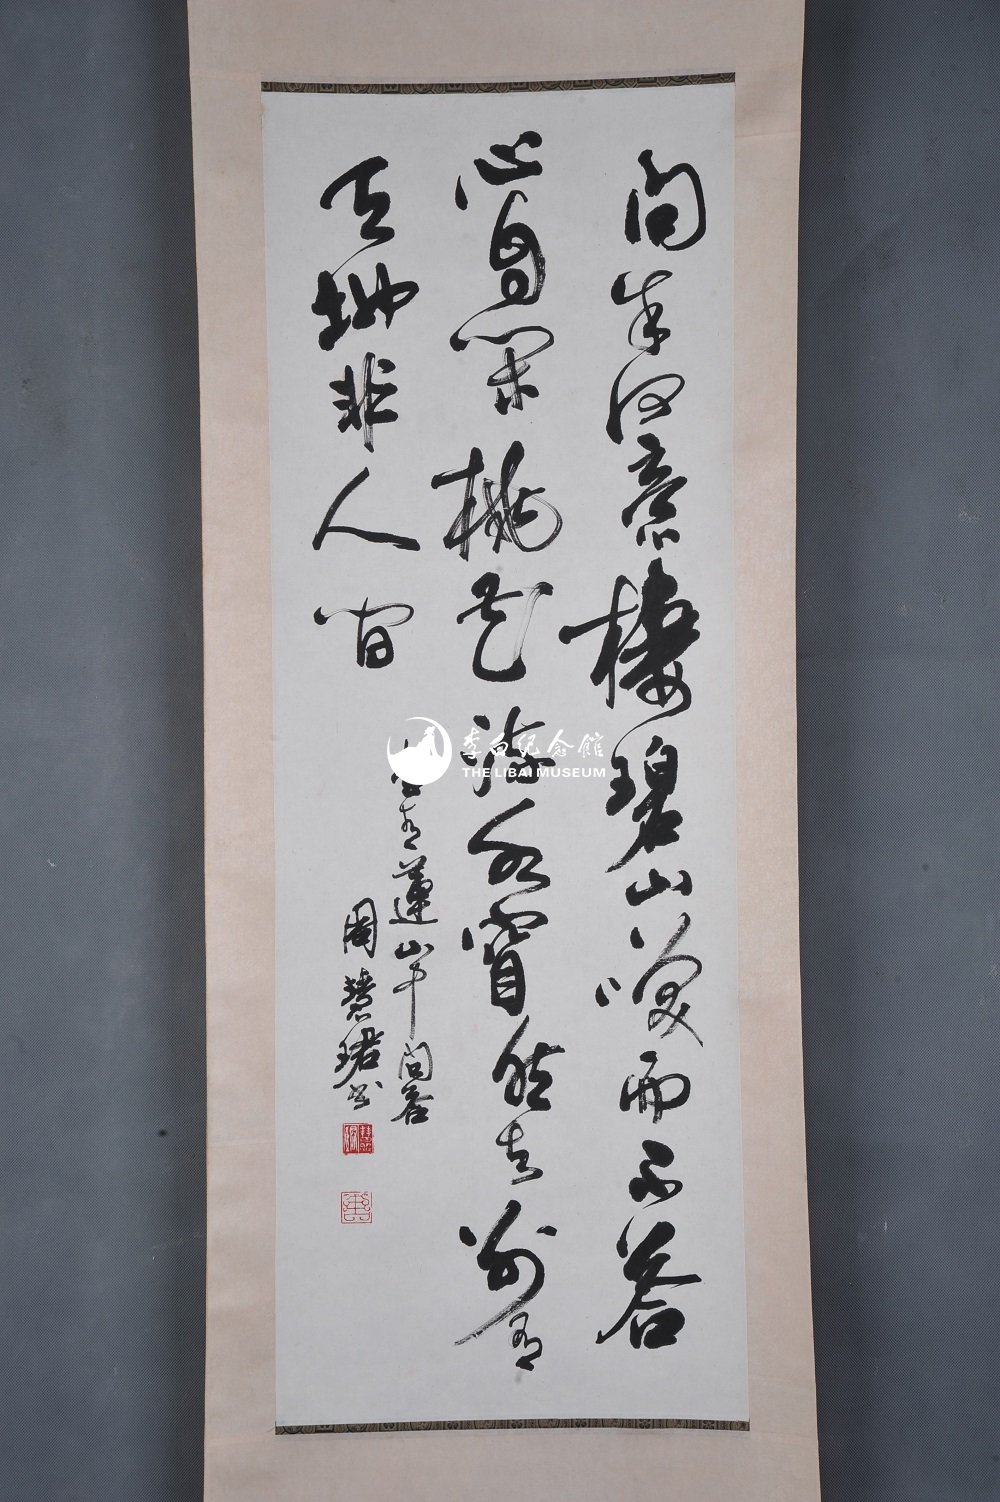 問余何意棲碧山咲而不答
心自閑桃花流水窅然去別有
天地非人間
青蓮山中問答
周慧珺书
李白纪念館
THE LIBAI MUSEUM